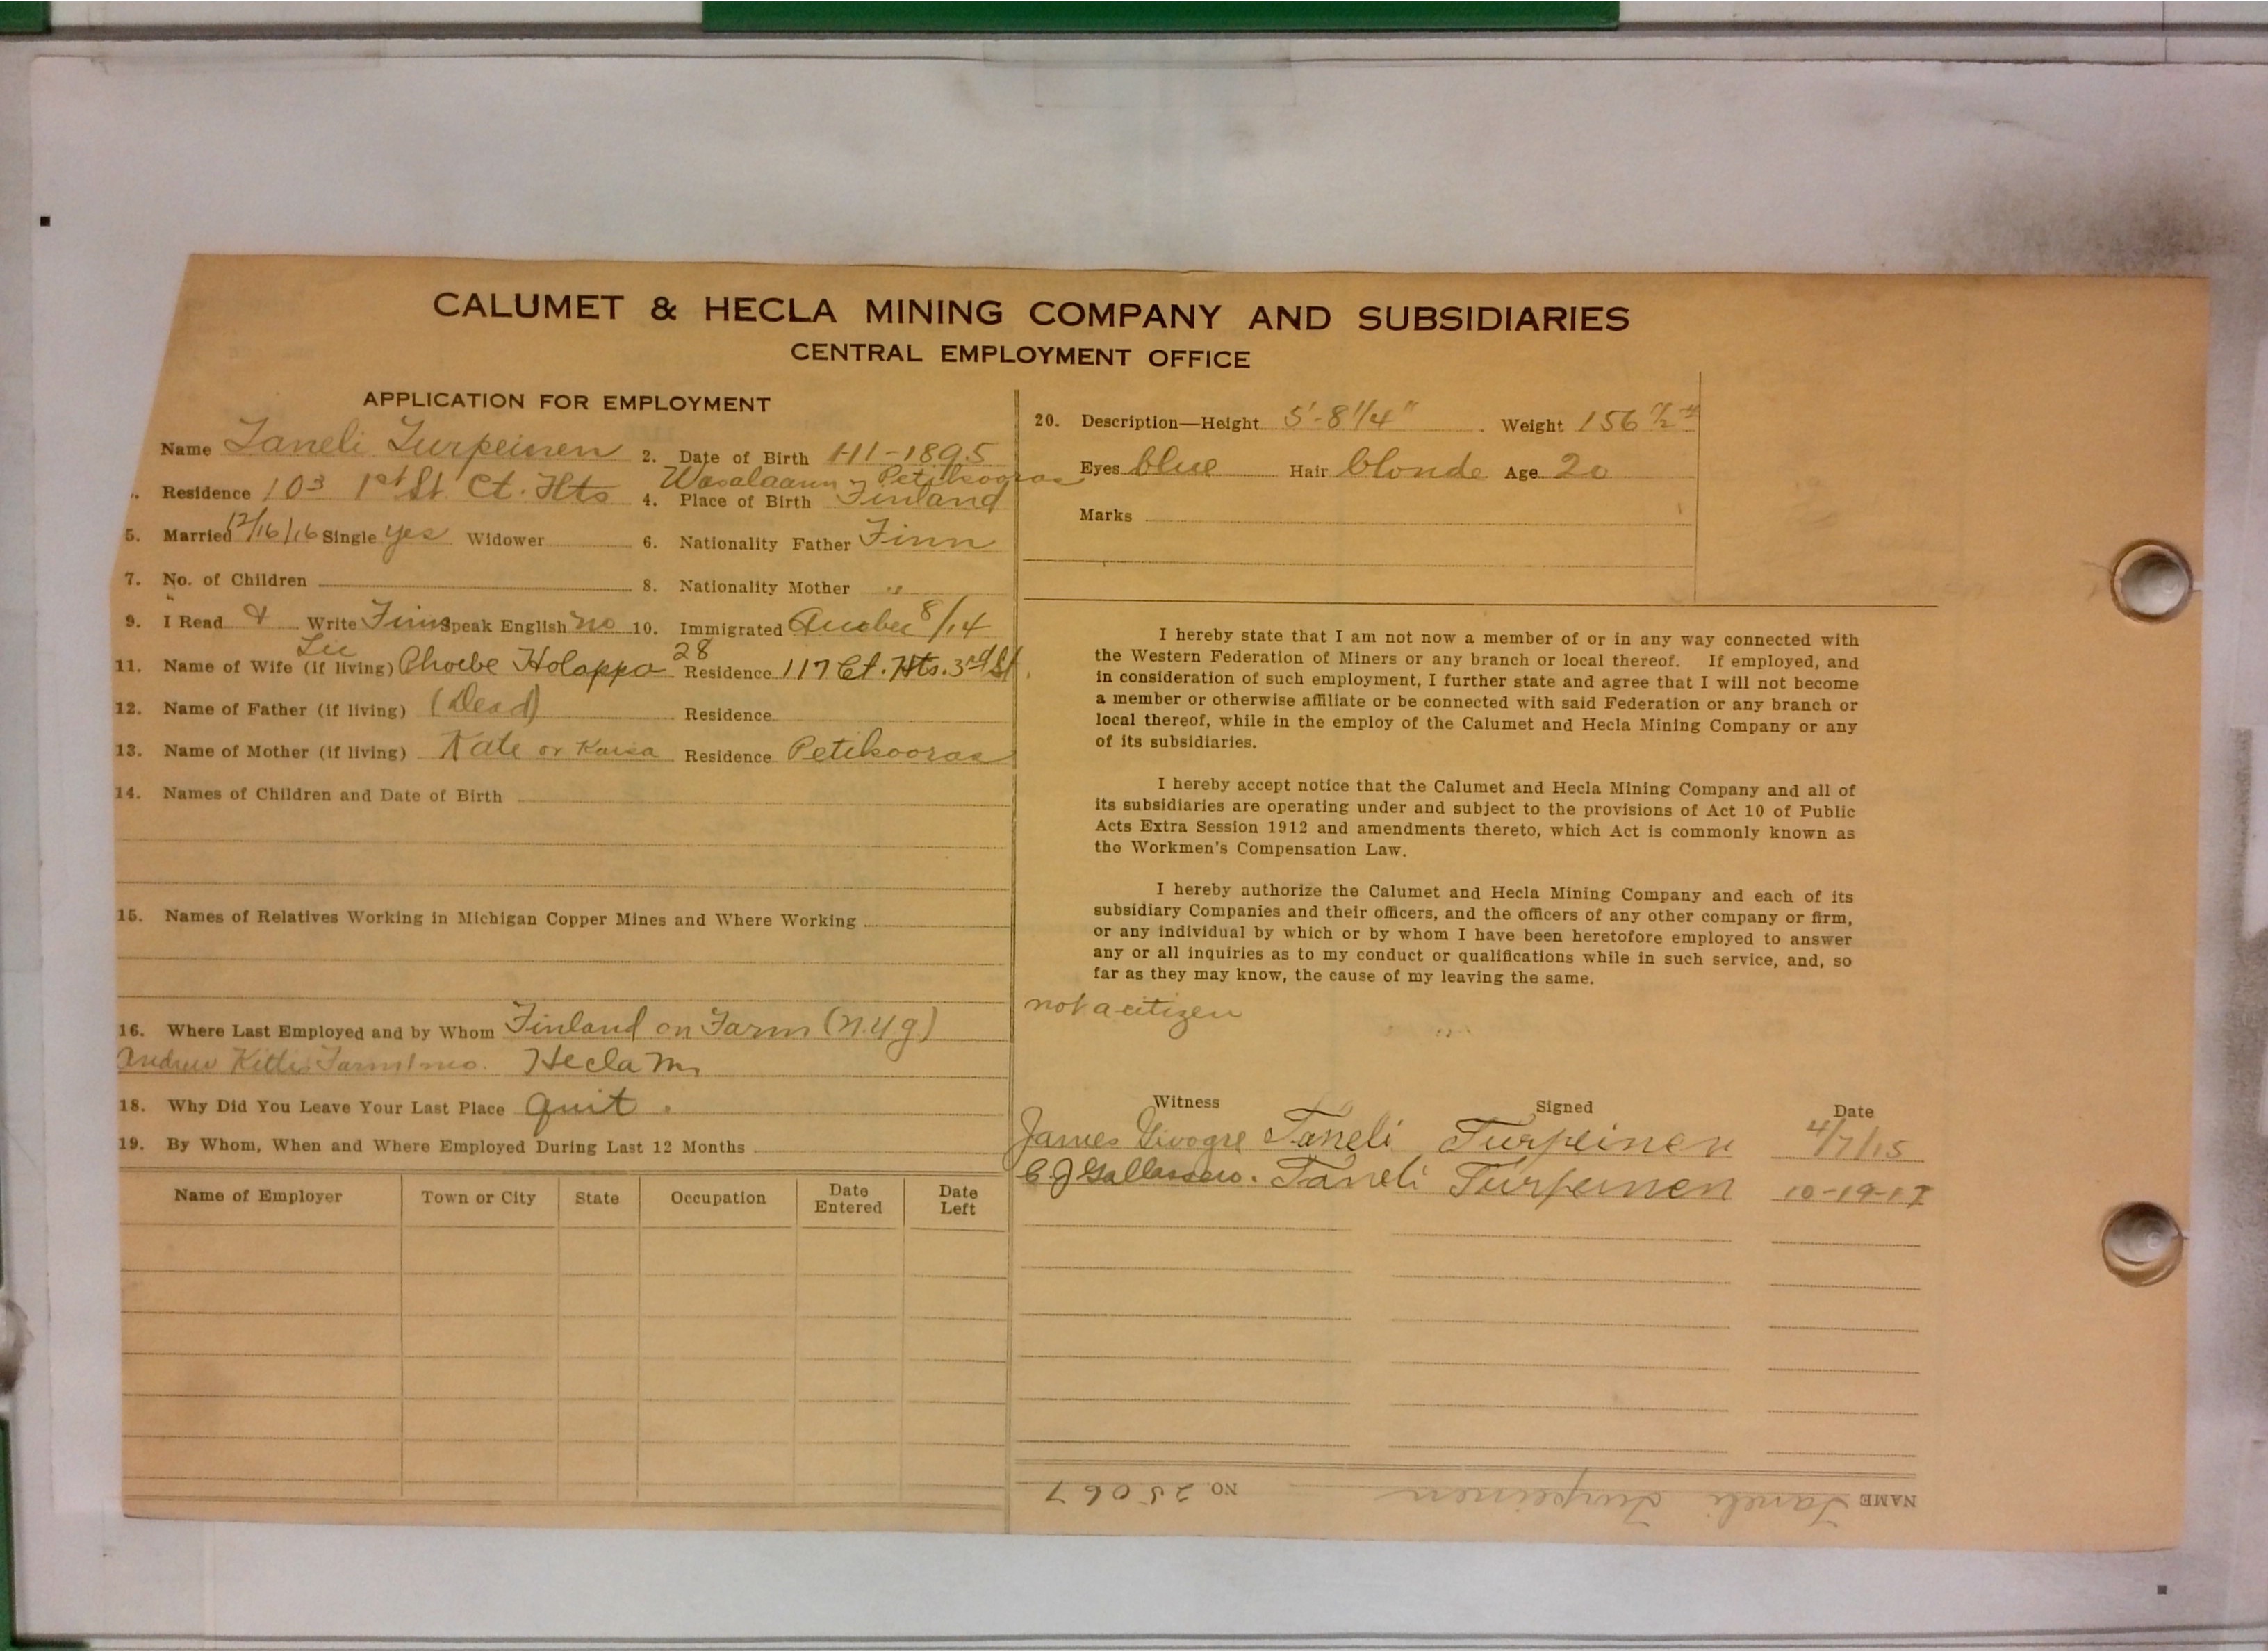 CALUMET & HECLA MINING COMPANY AND SUBSIDIARIES
CENTRAL EMPLOYMENT OFFICE
APPLICATION FOR EMPLOYMENT
Name Taneli Turpeinen 2. Date of Birth 1-11-1895
Petikooras
Residence 103 1st St Ct. Hts 4. Place of Birth Finland
5. Married 12/16/16 Single yes Widower 6. Nationality Father Finn
7. No. of Children 8. Nationality Mother "
9. I Read & Write Finn Speak English no 10. Immigrated 8/14
28
11. Name of Wife (if living) Phoebe Holappa Residence 117 Ct. Hts. 3rd St.
12. Name of Father (if living) (Dead) Residence
13. Name of Mother (if living) Kate or Kaisa Residence Petikooras
14. Names of Children and Date of Birth
15. Names of Relatives Working in Michigan Copper Mines and Where Working
16. Where Last Employed and by Whom Finland on Farm (N.Y.G)
Andrew Farm 1 mo. Hecla M.
18. Why Did You Leave Your Last Place Quit.
19. By Whom, When and Where Employed During Last 12 Months
Name of Employer Town or City State Occupation Date Entered Date Left
20. Description—Height 5'-8 1/4" Weight 156 1/2 #
Eyes blue Hair blonde Age 20
Marks
I hereby state that I am not now a member of or in any way connected with
the Western Federation of Miners or any branch or local thereof. If employed, and
in consideration of such employment, I further state and agree that I will not become
a member or otherwise affiliate or be connected with said Federation or any branch or
local thereof, while in the employ of the Calumet and Hecla Mining Company or any
of its subsidiaries.
I hereby accept notice that the Calumet and Hecla Mining Company and all of
its subsidiaries are operating under and subject to the provisions of Act 10 of Public
Acts Extra Session 1912 and amendments thereto, which Act is commonly known as
the Workmen's Compensation Law.
I hereby authorize the Calumet and Hecla Mining Company and each of its
subsidiary Companies and their officers, and the officers of any other company or firm,
or any individual by which or by whom I have been heretofore employed to answer
any or all inquiries as to my conduct or qualifications while in such service, and, so
far as they may know, the cause of my leaving the same.
not a citizen
Witness Signed Date
James Taneli Turpeinen 4/7/15
C. J. Taneli Turpeinen 10-19-17
NAME Taneli Turpeinen NO. 25067